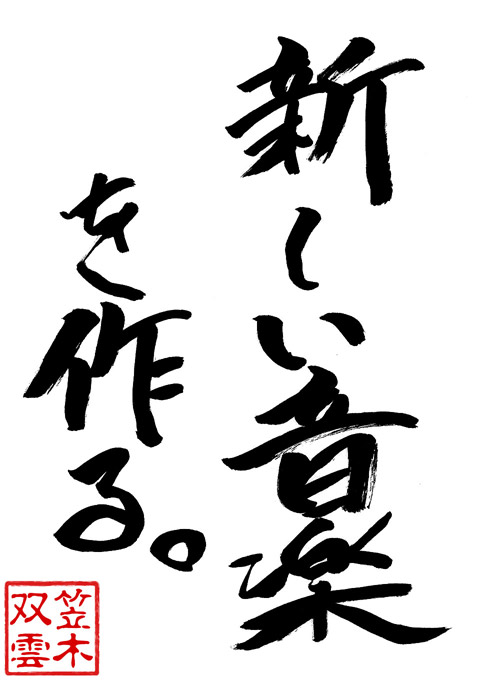 新しい音楽
を作る。
笠木
双雲